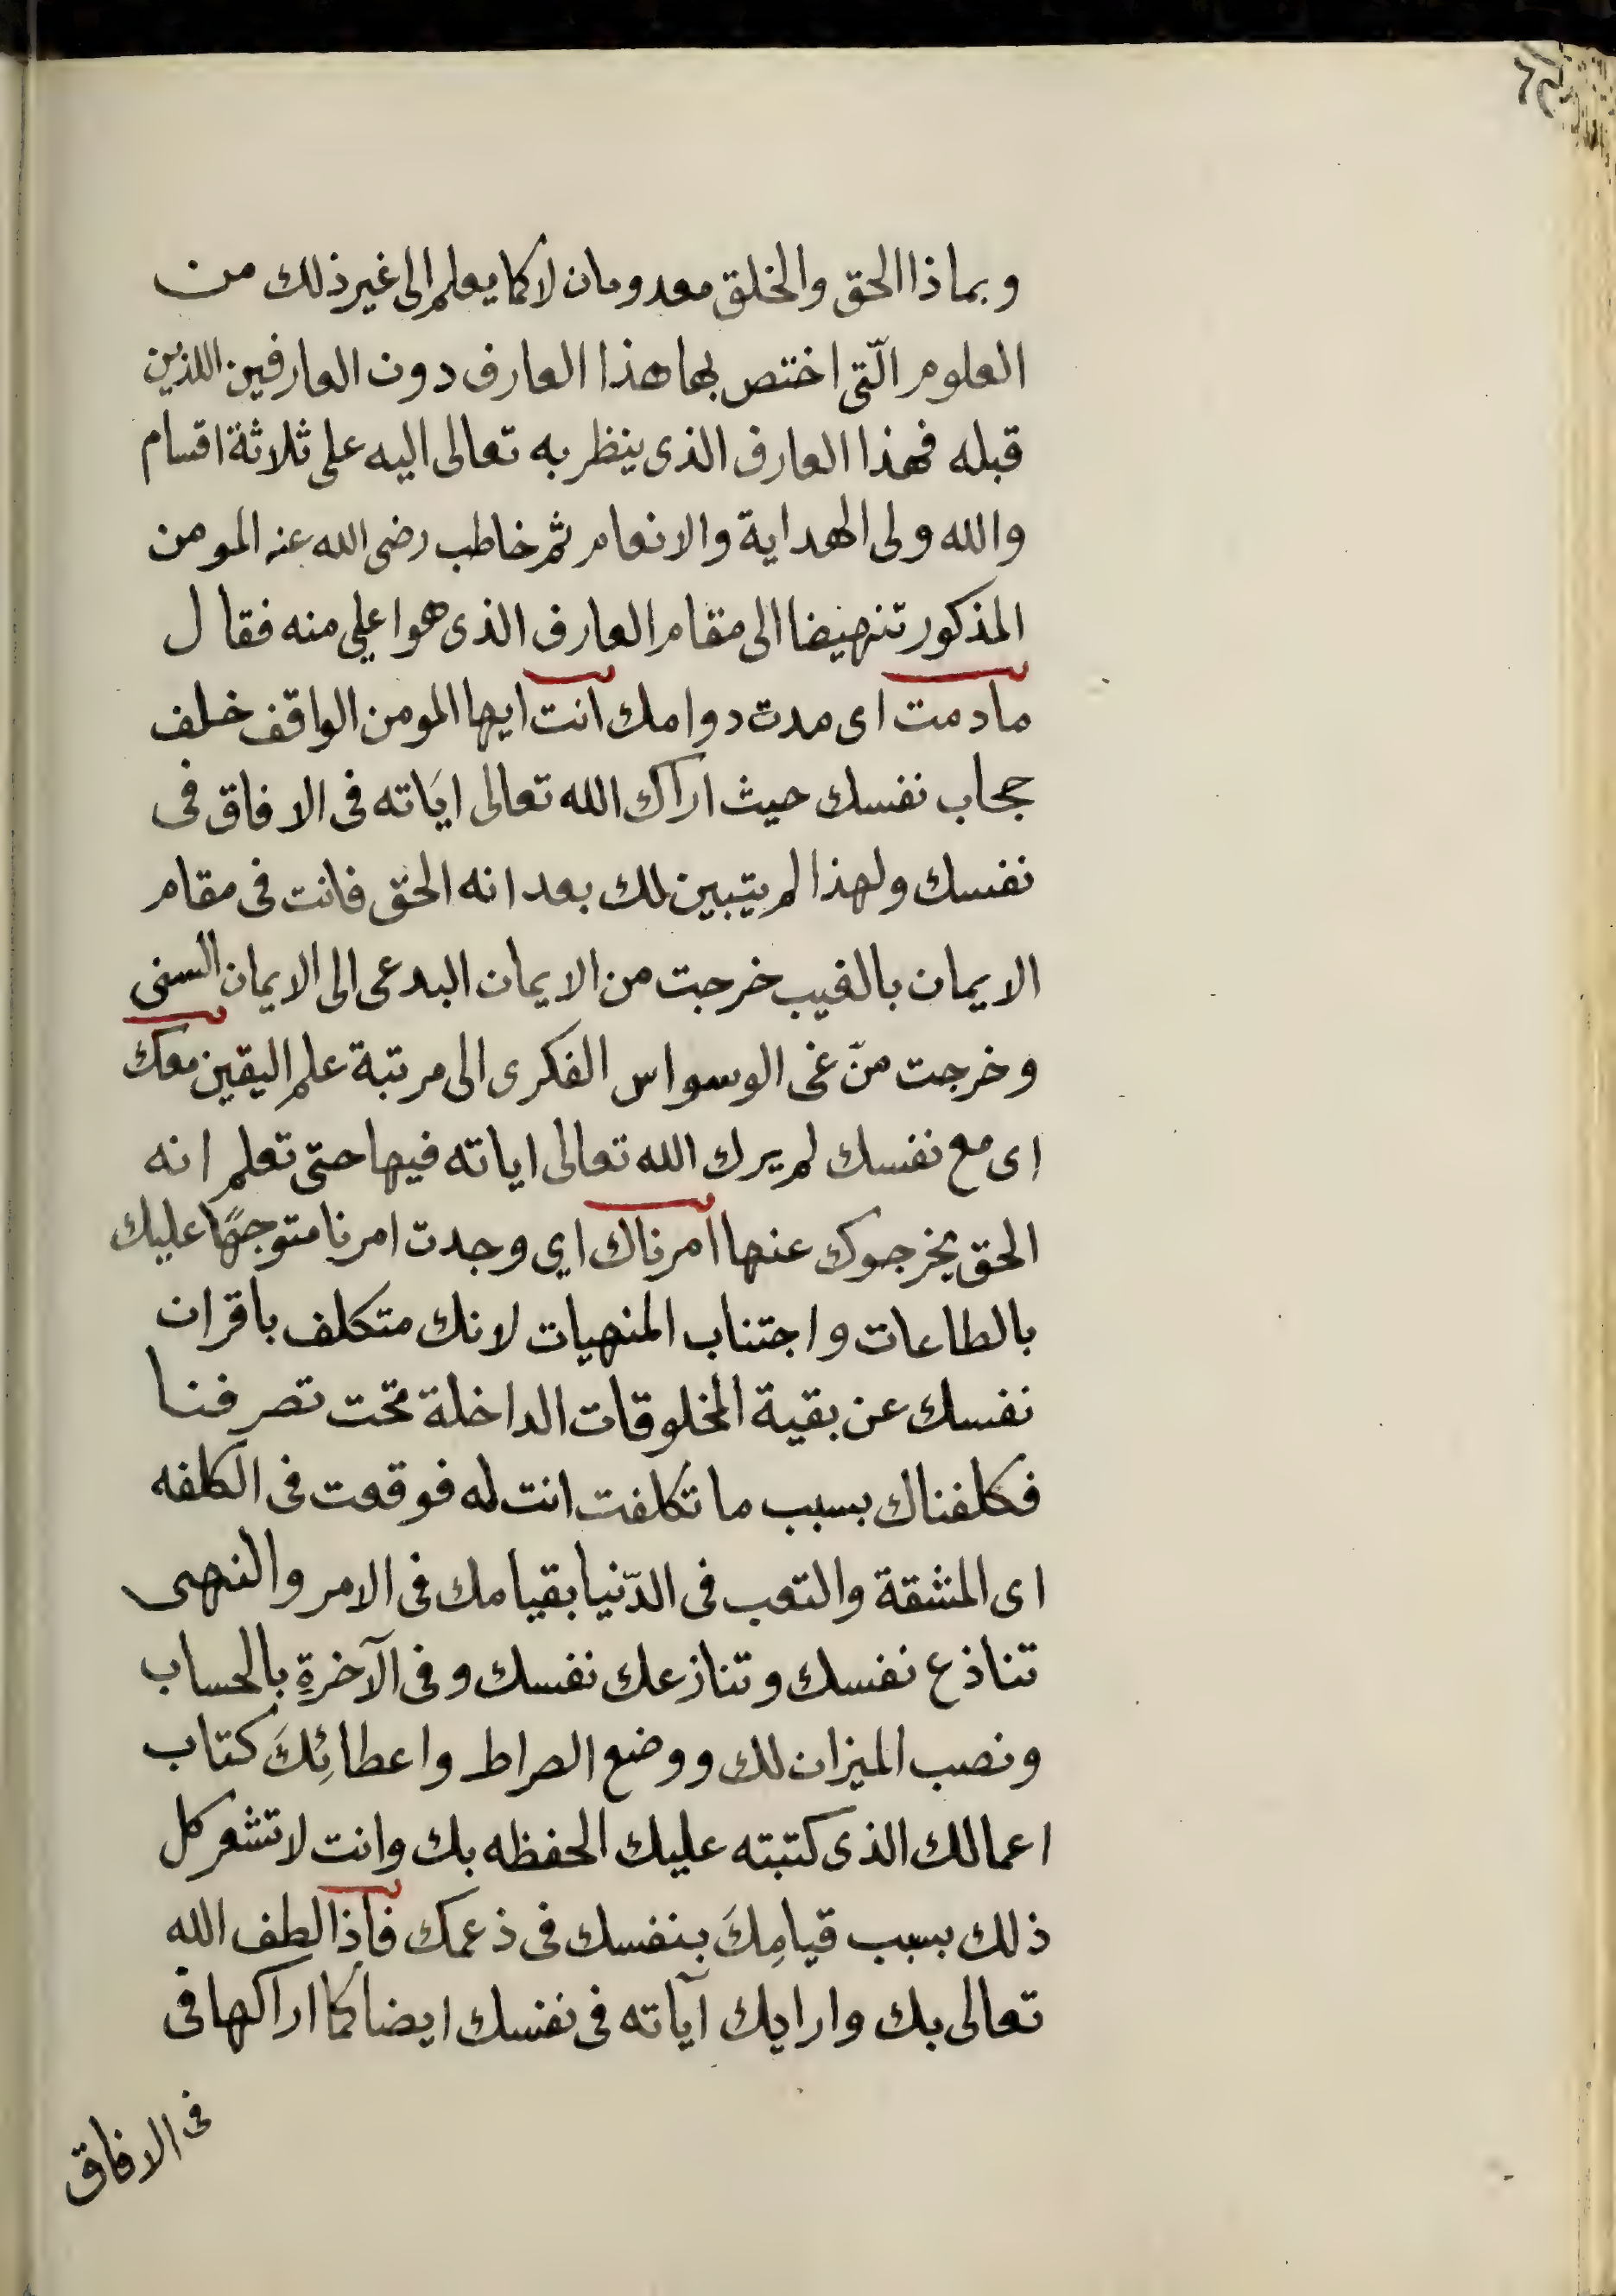 وبماذا الحق والخلق معدومان لا كما يعلم الى غير ذلك من
العلوم الّتى اختص بها هذا العارف دون العارفين اللذين
قبله فهذا العارف الذى ينظر به تعالى اليه على ثلاثة اقسام
والله ولى الهداية والانعام ثم خاطب رضى الله عنه المومن
المذكور تنهيضا الى مقام العارف الذى هو اعلى منه فقال
مادمت اى مدت دوامك انت ايها المومن الواقف خلف
حجاب نفسك حيث اراك الله تعالى اياته فى الافاق فى
نفسك ولهذا لم يتبين لك بعد انه الحق فانت فى مقام
الايمان بالغيب خرجت من الايمان البدعى الى الايمان السنى
وخرجت منّ غى الوسواس الفكرى الى مرتبة علم اليقين معك
اى مع نفسك لم يرك الله تعالى اياته فيها حتى تعلم انه
الحق يخرجوك عنها امرناك اي وجدت امرنا متوجهًا عليك
بالطاعات واجتناب المنهيات لانك متكلف باقران
نفسك عن بقية المخلوقات الداخلة تحت تصرفنا
فكلفناك بسبب ما تكلفت انت له فوقعت فى الكلفه
اى المشقة والتعب فى الدّنيا بقيامك فى الامر والنهى
تناذع نفسك وتنازعك نفسك وفى الآخرةِ بالحساب
ونصب الميزان لك ووضع الصراط واعطائِكَ كتاب
اعمالك الذى كتبته عليك الحفظه بك وانت لا تشعر كل
ذلك بسبب قيامِكَ بنفسك فى ذعمك فاذا لطف الله
تعالى بك وارايك آياته فى نفسك ايضا كما اراكها فى
فى الافاق